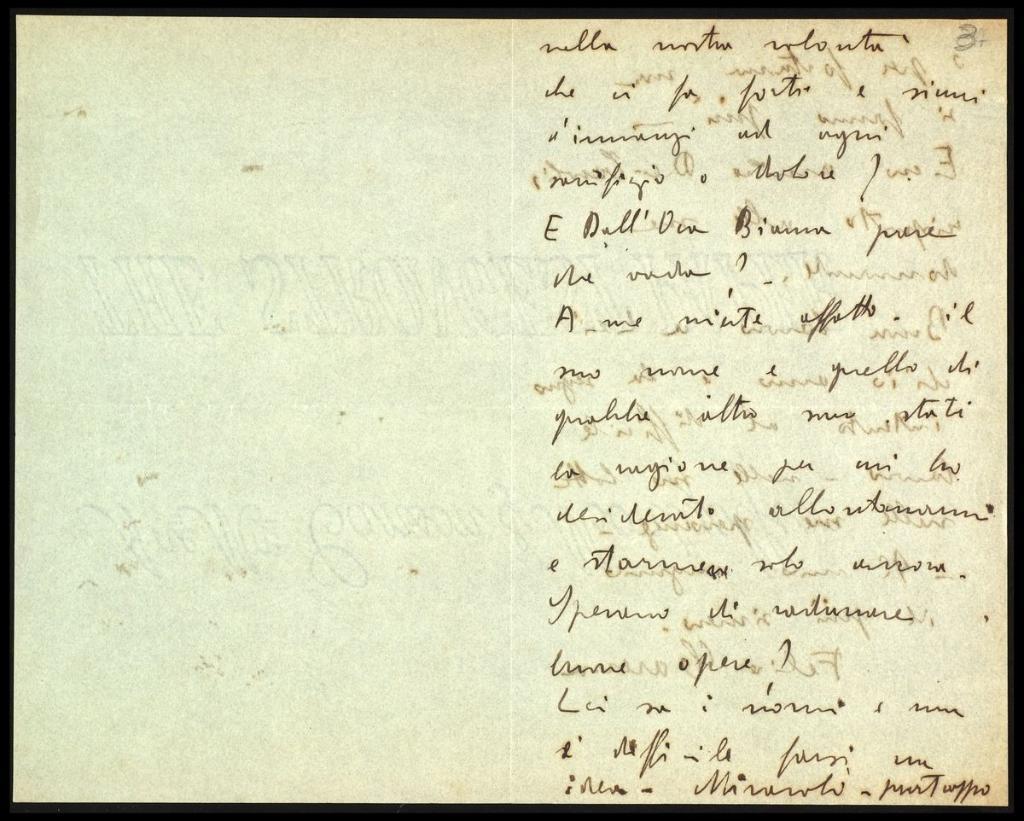 3.
nella nostra volontà
che ci fa forti e sicuri
d'innanzi ad ogni
sacrifizio o dolore?
E Dall'Oca Bianca pare
che vada?
A me niente affatto - il
suo nome e quello di
qualche altro sono stati
la ragione per cui ho
desiderato allontanarmi
e starmene solo ancora.
Sperano di radunare
buone opere?
Lei sa i nomi e non
è difficile farsi un
idea - - purtroppo